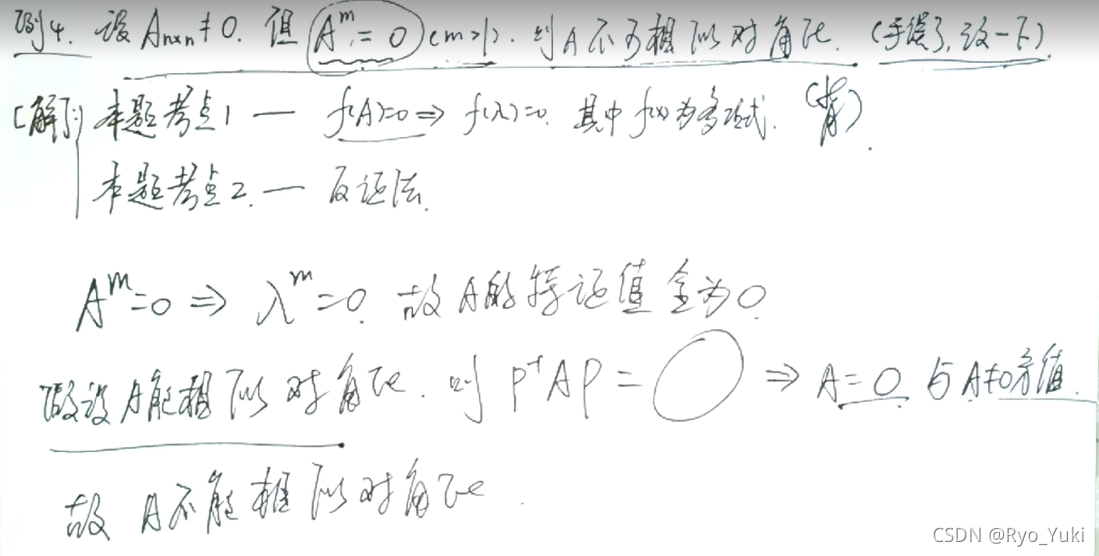 例4. 设 Aₙₓₙ≠0. 但 Aᵐ=0 (m>1). 则A不可相似对角化. (手误了,改一下)
[解]: 本题考点1 — f(A)=0 ⇒ f(λ)=0. 其中 f(x)为多项式. (背)
本题考点2. — 反证法.
Aᵐ=0 ⇒ λᵐ=0. 故A的特证值全为0.
假设A能相似对角化. 则 P⁻¹AP = 0 ⇒ A=0. 与A≠0矛值.
故 A不能相似对角化.
CSDN @Ryo_Yuki